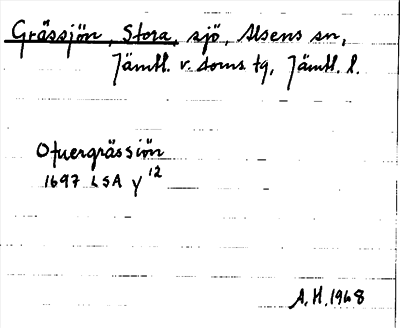 Grässjön, Stora, sjö, Alsens sn,
Jämtl. v. doms. tg, Jämtl. l.
Ofuergrässiön
1697 LSA y 12
A.H. 1968